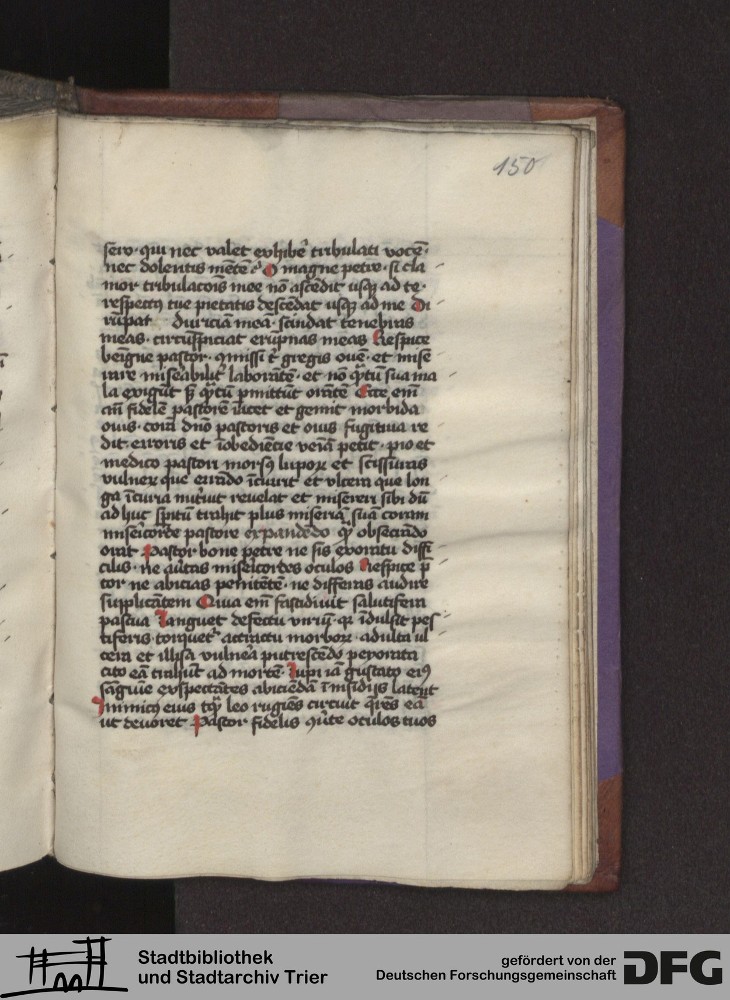 150
sero· qui nec valet exhibē tribulati vocē·
nec dolentis mētē O magne petre· si cla
mor tribulacōis mee nō ascēdit usqꝫ ad te·
respectꝰ tue pietatis descēdat usqꝫ ad me Di
rūpat duriciam meā· scindat tenebras
meas· circūspiciat erūpnas meas Respice
beigne pastor· ꝯmissi t gregis ouē· et mise
rare miseabiliť laborātē· et nō qᵃtū sua ma
la exigūt sꝫ qᵃtū pmittūt orātē Ecce em̄
an̄ fidelē pastorē iacet et gemit morbida
ouis· corā dnō pastoris et ouis fugitiua re
dit· erroris et īobediētie veiā petit· pio et
medico pastori morsꝰ lupoꝝ et scissuras
vulneꝝ que errādo īcurrit et ulcera que lon
ga īcuria nutriuit reuelat et misereri sibi dū
adhuc spītū trahit plus miseriā suā coram
misericorde pastore expandēdo qᵃ obsecrādo
orat Pastor bone petre ne sis exoratu diffi
cilis· ne aūtas misericordes oculos Respice p
tor ne abicias penitētē· ne differas audire
supplicātem Quia em̄ fastidiuit salutifera
pascua Languet defectu viriū· qꝛ īdulsit pes
tiferis· torquet attractu morboꝝ· adulta ul
cera et illisa vulnea putrescēdo peyorata
cito eā trahūt ad mortē· Lupi iā gustato eiꝰ
sāguie exspectātes abiciēdā ī insidijs latent
Inimicꝰ eius tqᵃ leo rugiēs circuit qrēs eā
ut deuoret Pastor fidelis ꝯūte oculos tuos
Stadtbibliothek
und Stadtarchiv Trier
gefördert von der
Deutschen Forschungsgemeinschaft
DFG